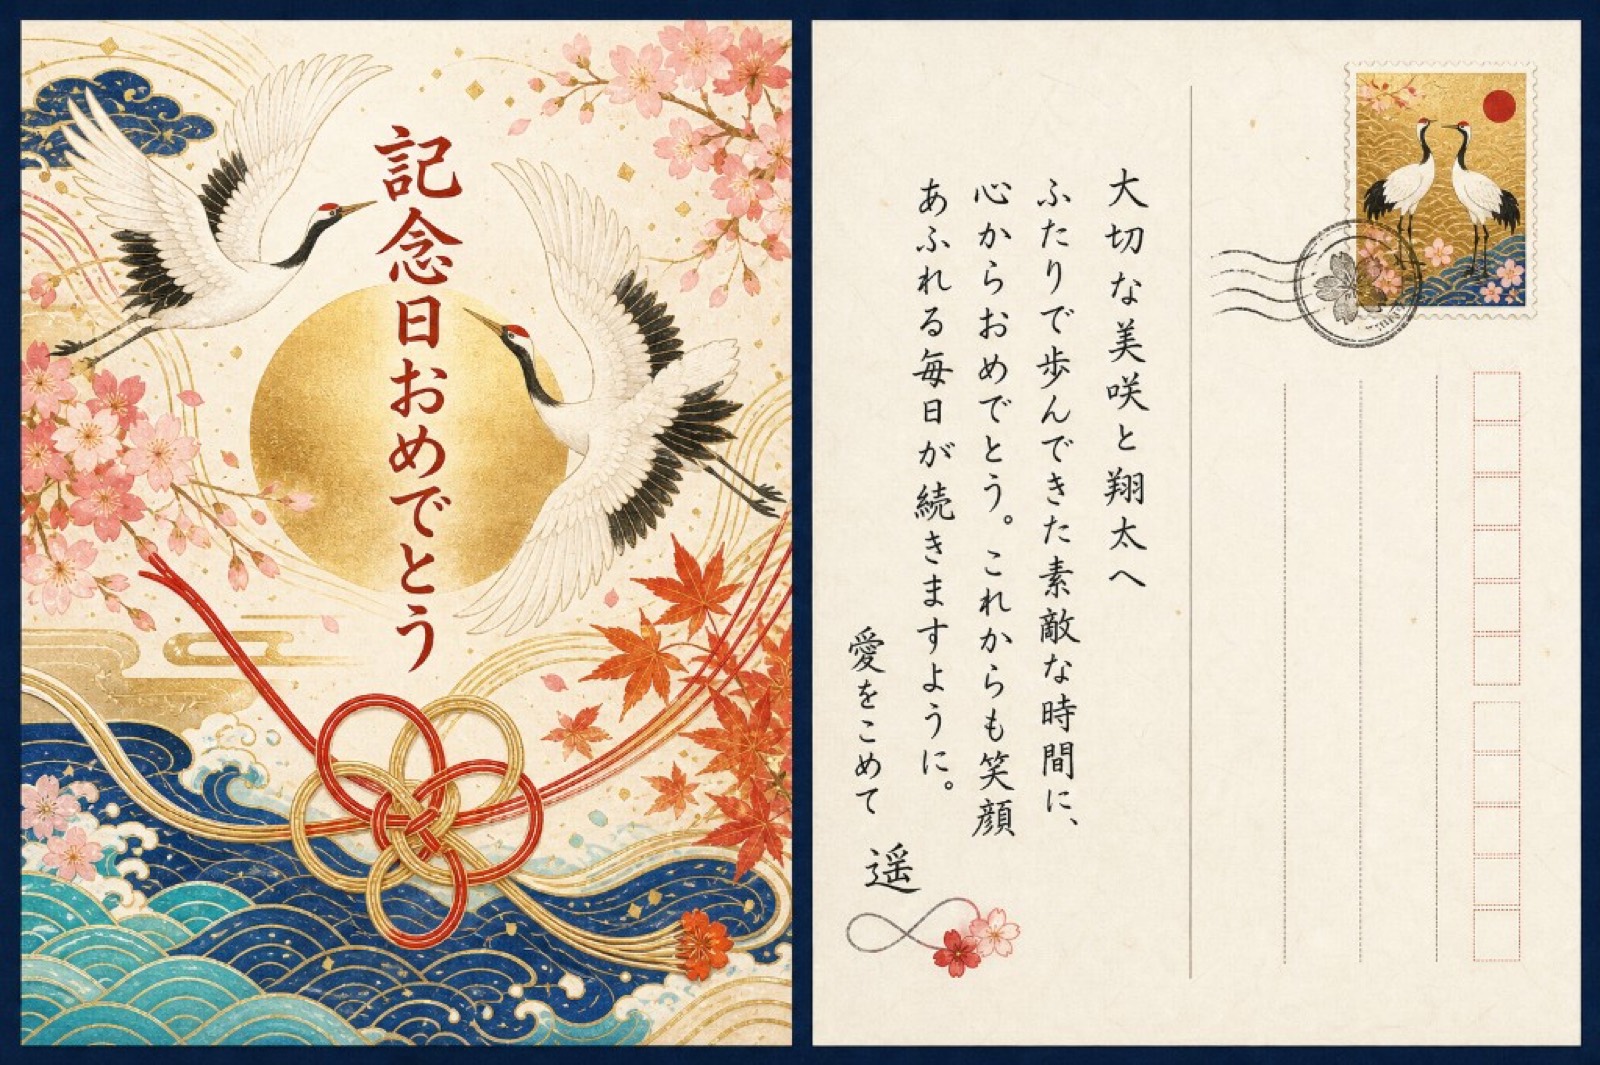 記念日おめでとう
大切な美咲と翔太へ
ふたりで歩んできた素敵な時間に、
心からおめでとう。これからも笑顔
あふれる毎日が続きますように。
愛をこめて
遥